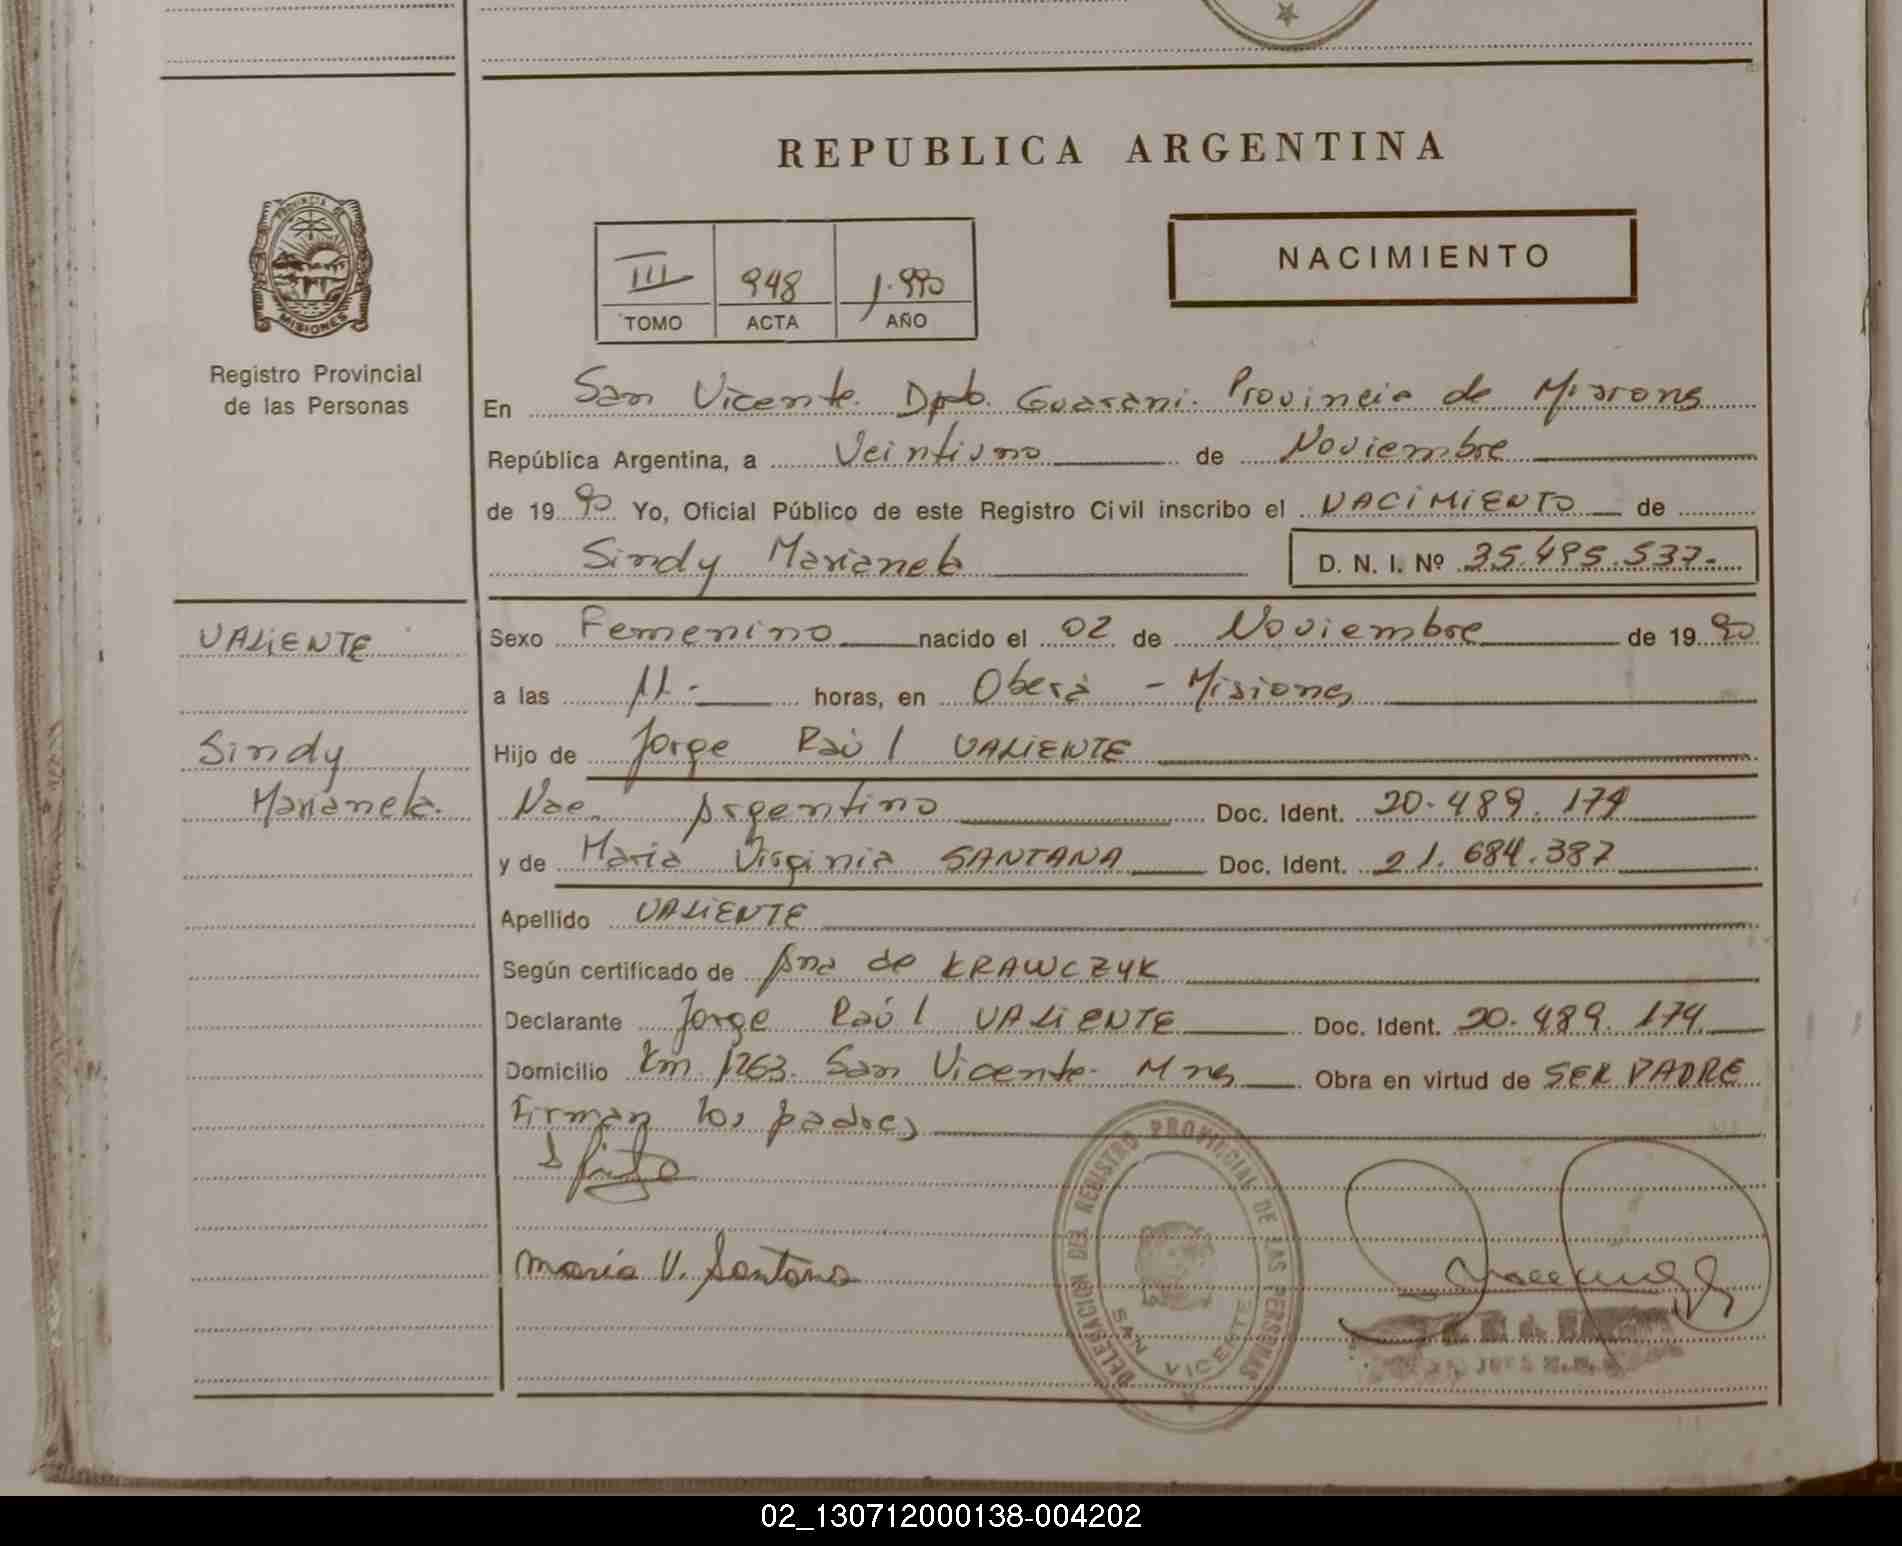 REPUBLICA ARGENTINA
PROVINCIA DE
MISIONES
Registro Provincial
de las Personas
III 948 1.990
TOMO ACTA AÑO
NACIMIENTO
En San Vicente. Dpto. Guarani. Provincia de Misiones
República Argentina, a Veintiuno de Noviembre
de 1990 Yo, Oficial Público de este Registro Civil inscribo el NACIMIENTO de
Sindy Marianela D. N. I. Nº 35.495.537.-
VALIENTE
Sindy
Marianela.
Sexo Femenino nacido el 02 de Noviembre de 1990
a las 11.- horas, en Oberá - Misiones
Hijo de Jorge Raúl VALIENTE
Nac. Argentino Doc. Ident. 20.489.174
y de Maria Virginia SANTANA Doc. Ident. 21.684.387
Apellido VALIENTE
Según certificado de Ana de KRAWCZYK
Declarante Jorge Raúl VALIENTE Doc. Ident. 20.489.174
Domicilio Km 1263. San Vicente- Mnes Obra en virtud de SER PADRE
Firman los padres
maria V. Santana
DELEGACION DEL REGISTRO PROVINCIAL DE LAS PERSONAS
SAN VICENTE
02_130712000138-004202